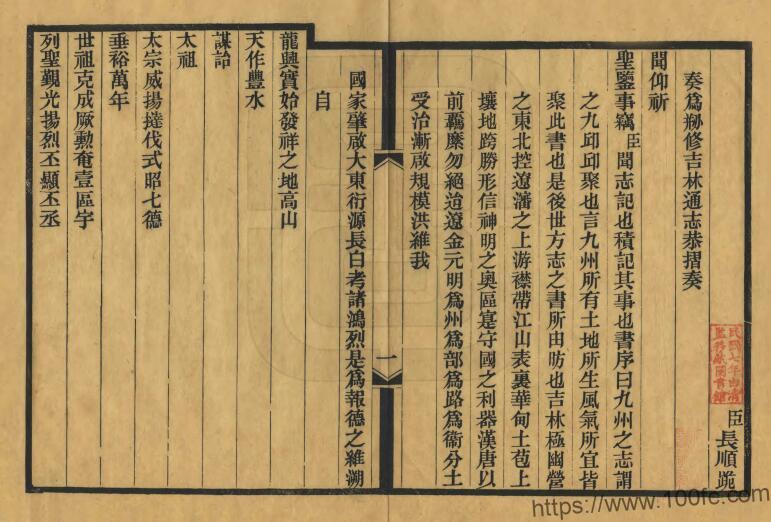 臣長順跪
奏爲刱修吉林通志恭摺奏
聞仰祈
聖鑒事竊臣聞志記也積記其事也書序曰九州之志謂
之九邱邱聚也言九州所有土地所生風氣所宜皆
聚此書也是後世方志之書所由昉也吉林極幽營
之東北控遼瀋之上游襟帶江山表裏華甸土苞上
壤地跨勝形信神明之奧區寔守國之利器漢唐以
前羈縻勿絕迨遼金元明爲州爲部爲路爲衞分土
受治漸啟規模洪維我
國家肇啟大東衍源長白考諸鴻烈是爲報德之維溯
自
龍興實始發祥之地高山
天作豐水
謀詒
太祖
太宗威揚撻伐式昭七德
垂裕萬年
世祖克成厥勳奄壹區宇
列聖覲光揚烈丕顯丕丞
一
https://www.100fc.com